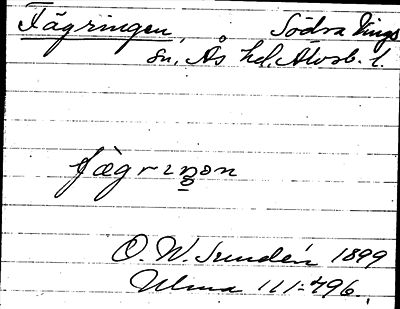 Fägringen, Södra Vings
sn, Ås hd, Älvsb. l.
fægrɪŋən
O. W. Sundén 1899
Ulma 111:496.